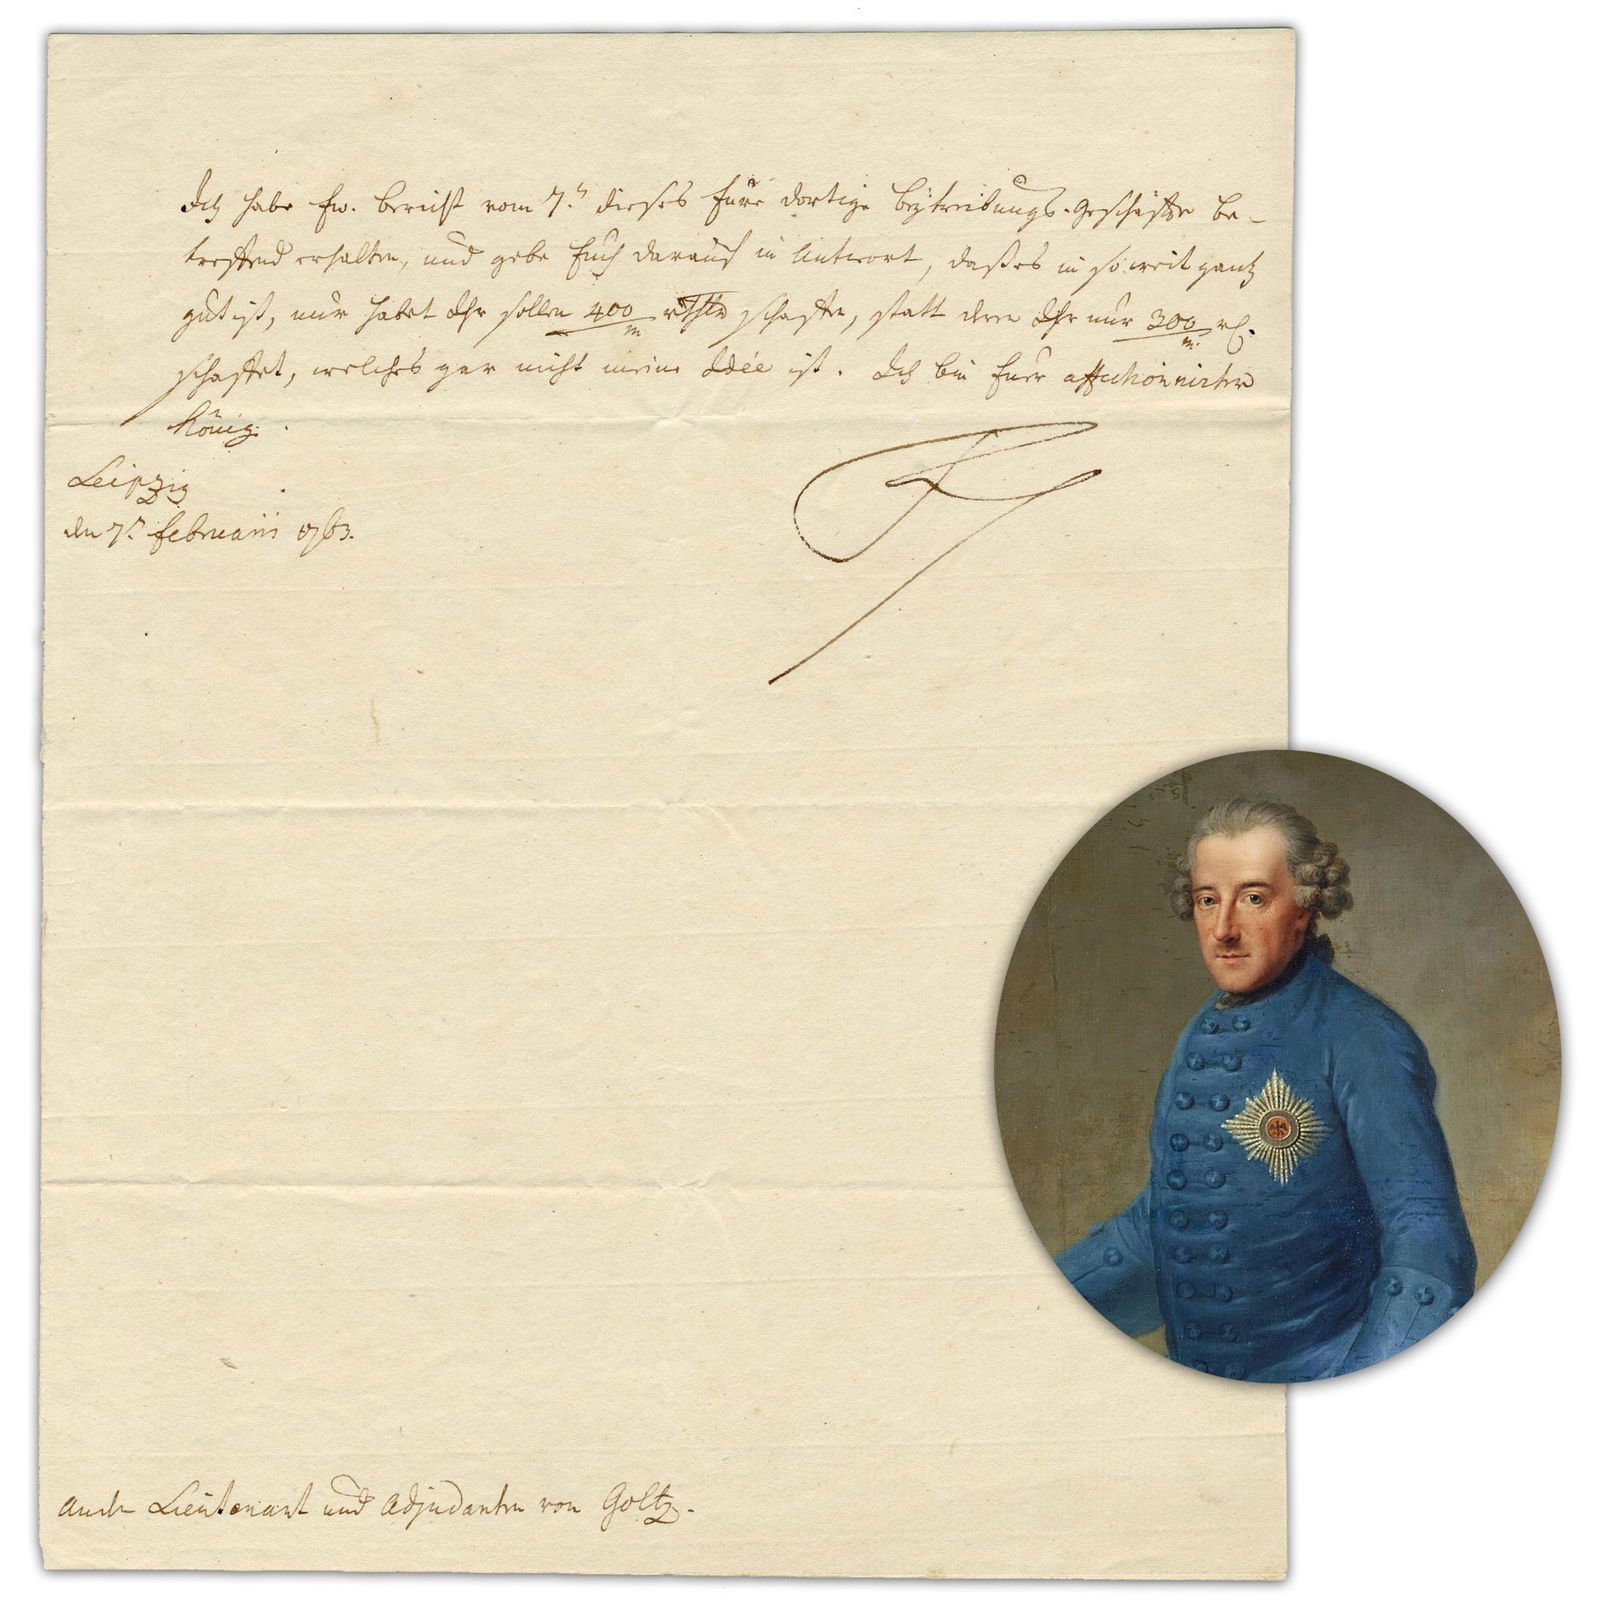 Ich habe Ew. bericht vom 7.ⁿ dieses Eure dortige Beytreibungs-Geschäffte be-
treffend erhalten, und gebe Euch darauf in Antwort, daß es in so weit gantz
gut ist, nur habet Ihr sollen 400/m rthlr schaffen, statt deren Ihr nur 300/m. rl.
schaffet, welches gar nicht meine Idée ist. Ich bin Euer affectionnirter
König.
Leipzig
den 7.ⁿ Februarii 1763.
Lieutenant und Adjudanten von Goltz.